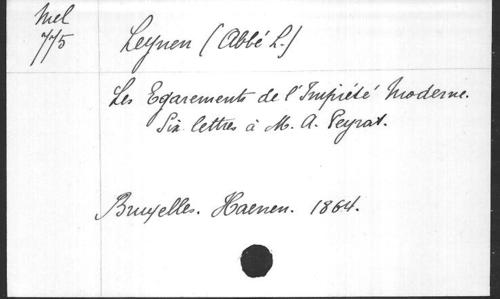 Mel
775
Leynen (Abbé L.)
Les Egarements de l'Impiété Moderne.
Six lettres à M. A. Peyrat.
Bruxelles. Haenen. 1864.